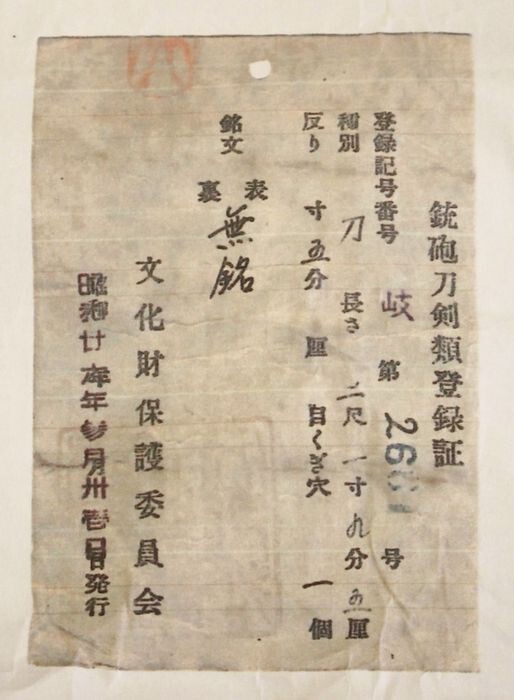 銃砲刀剣類登録証
登録記号番号 岐 第 号
種別 刀 長さ 二尺一寸九分五厘
反り 寸五分 厘 目くぎ穴 一個
銘文 表 無銘
裏
文化財保護委員会
昭和廿 年参月卅壱日発行